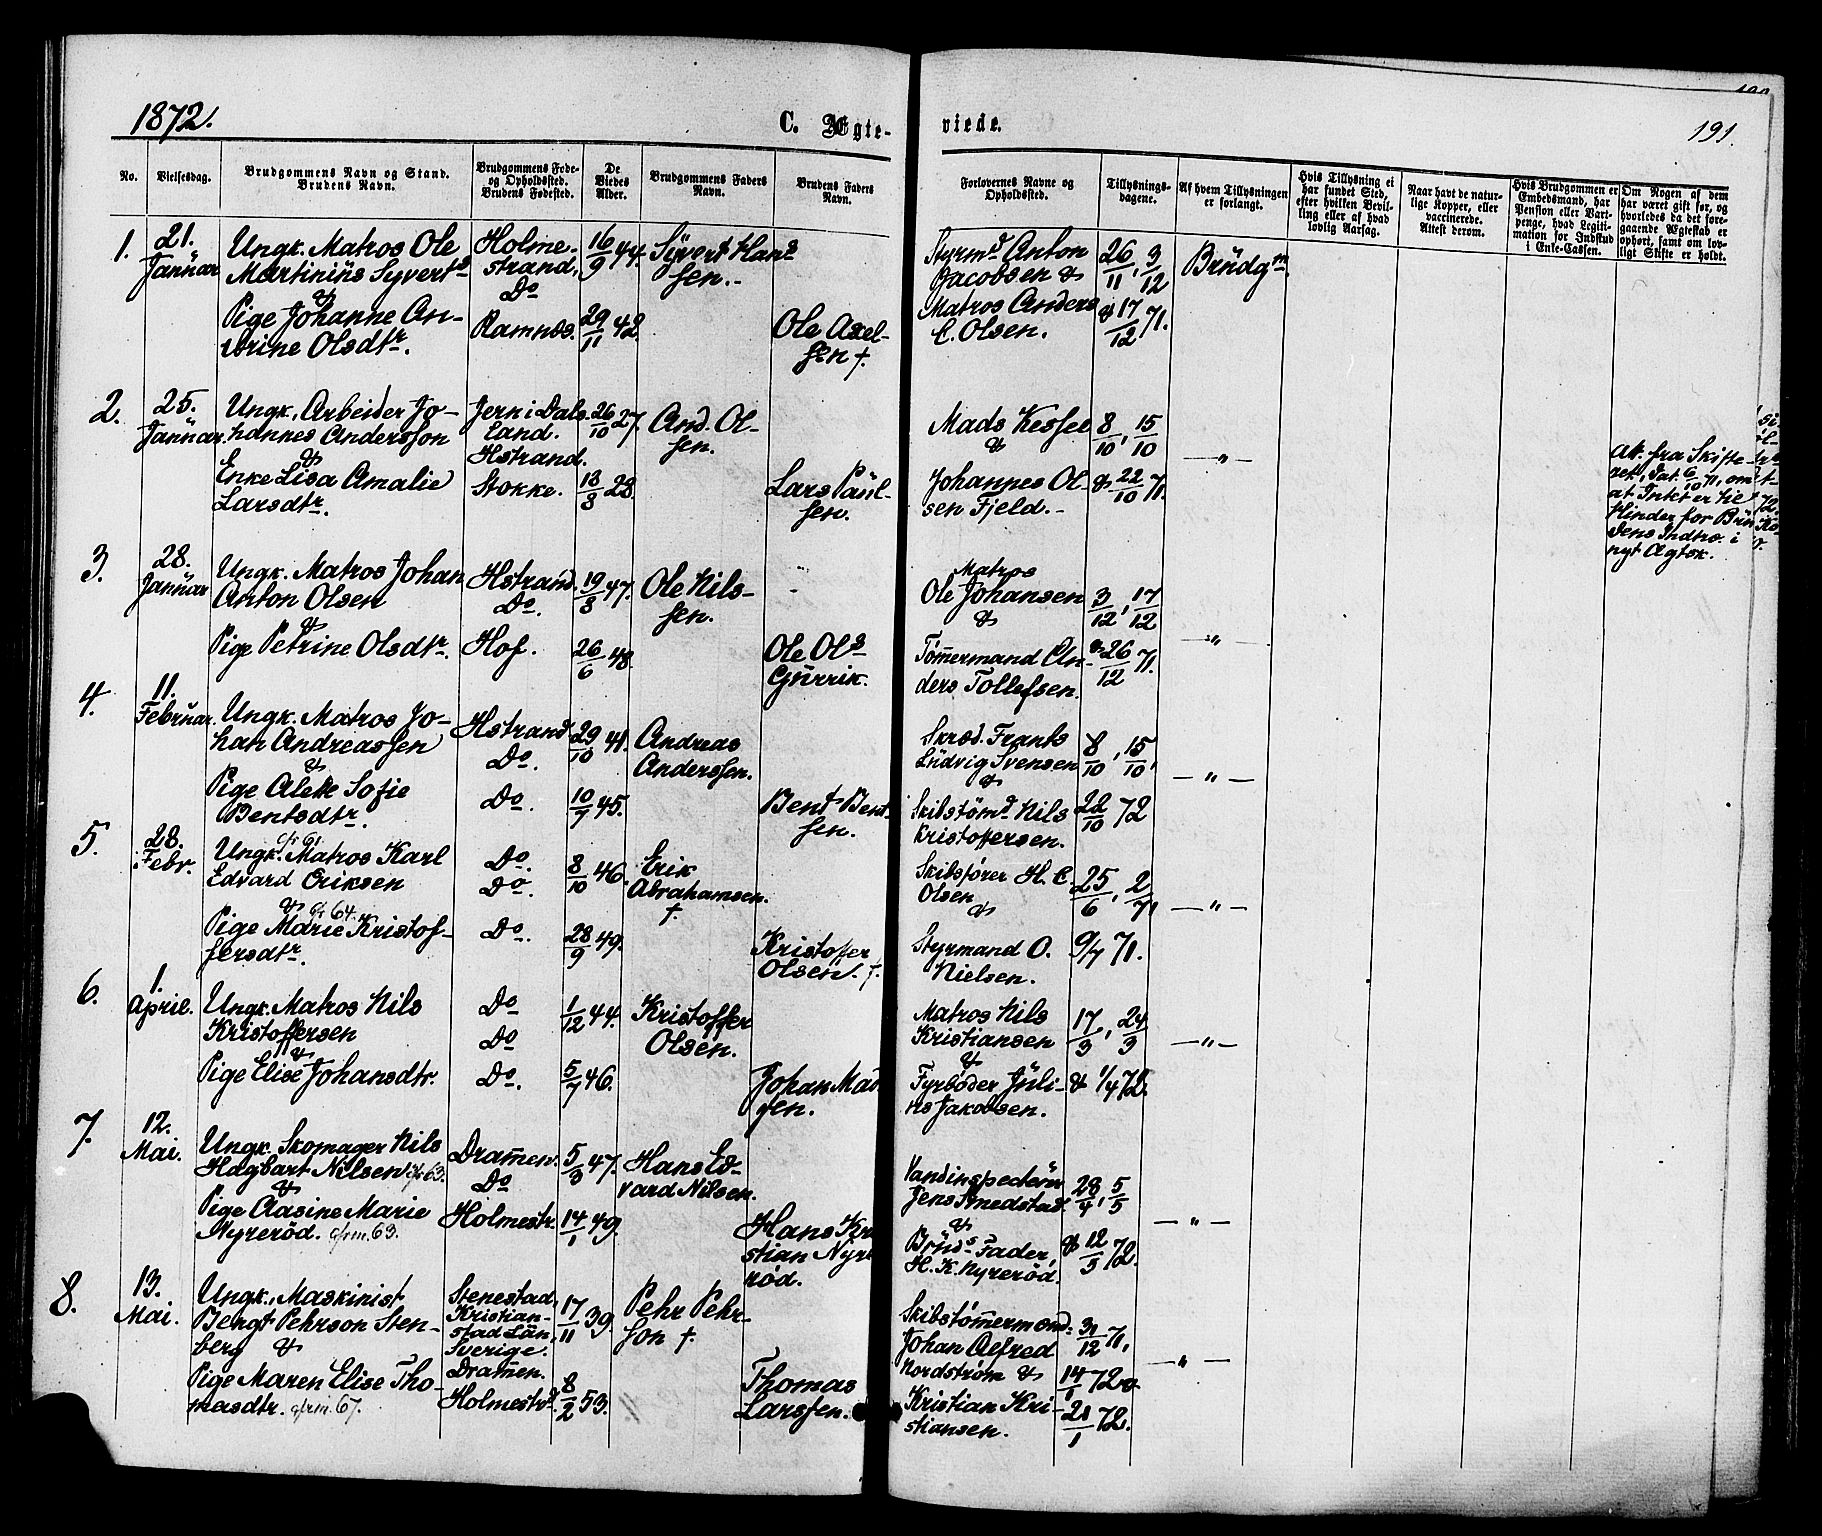 1872.
C. Ægte-
viede.
191.
No.
Vielsesdag.
Brudgommens Navn og Stand.
Brudens Navn.
Brudgommens Føde-
og Opholdssted.
Brudens Fødested.
De
Viedes
Alder.
Brudgommens Faders
Navn.
Brudens Faders
Navn.
Forlovernes Navne og
Opholdssted.
Tillysnings-
dagene.
Af hvem Tillysningen
er forlangt.
Hvis Tillysning ei
har fundet Sted,
efter hvilken Bevil-
ling eller af hvad
lovlig Aarsag.
Naar havt de natur-
lige Kopper, eller
vaccinerede.
Attest derom.
Hvis Brudgommen er
Embedsmand, har
Pension eller Vart-
penge, hvad Legiti-
mation for Indskud
i Enke-Cassen.
Om Nogen af dem
har været gift før, og
hvorledes da det fore-
gaaende Ægteskab er
ophørt, samt om lov-
ligt Skifte er holdt.
1.
21.
Januar
Ungk. Matros Ole
Martinius Syverts
&
Pige Johanne An-
drine Olsdtr.
Holme-
strand,
Do
Ramnes.
16/9 44.
29/11 42.
Syvert Hans
sen.
Ole Axel-
sen †.
Styrmd Anton
Jacobsen &
Matros Anders
C. Olsen.
26/11, 3/12
& 17/12 71.
Brudgm.
2.
25.
Januar
Ungk. Arbeider Jo-
hannes Andersson
&
Enke Lisa Amalie
Larsdtr.
Jern i Dals
Land.
Hstrand.
Stokke.
26/10 27.
13/8 28.
And. Ol-
sen.
Lars Paul-
sen.
Mads Kessel
&
Johannes Ol-
sen Fjeld.
8/10, 15/10
& 22/10 71.
— " —
At. fra Skifte-
ret, Dat. 6/10 71, om
at Intet er til
Hinder for Bru-
dens Indtr. i
nyt Ægtsk.
3.
28.
Januar
Ungk. Matros Johan
Anton Olsen
&
Pige Petrine Olsdtr.
Hstrand.
Do.
Hof.
19/8 47.
26/6 48.
Ole Nils-
sen.
Ole Ols
Gurrik.
Matros
Ole Johansen
&
Tømmermand An-
ders Tollefsen.
3/12, 17/12
& 26/12 71.
— " —
4.
11.
Februar.
Ungk. Matros Jo-
han Andreassen
&
Pige Alette Sofie
Bentsdtr.
Hstrand
Do.
Do.
29/10 41.
10/7 45.
Andreas
Anderssen.
Bent Bent-
sen.
Skræd. Frants
Ludvig Svensen
&
Skibstømd Nils
Kristoffersen.
8/10, 15/10,
22/10 72
— " —
5.
28.
Febr.
cfr 61
Ungk. Matros Karl
Edvard Eriksen
& cfr 64.
Pige Marie Kristof-
fersdtr.
Do.
Do.
Do.
8/10 46.
28/9 49.
Erik
Abrahamsen.
†.
Kristoffer
Olsen. †.
Skibsfører H. C.
Olsen
&
Styrmand O.
Nielsen.
25/6, 2/7,
9/7 71.
— " —
6.
1.
April.
Ungk. Matros Nils
Kristoffersen
&
Pige Elise Johansdtr.
Do
Do
Do.
1/12 44.
5/7 46.
Kristoffer
Olsen.
Johan Mad
sen.
Matros Nils
Kristiansen
&
Fyrbøder Juli-
us Jakobsen.
17/3, 24/3
& 1/4 72.
— " —
7.
12.
Mai.
Ungk. Skomager Nils
Hagbart Nilsen cfr 63.
&
Pige Aasine Marie
Nyrerød. cfrm. 63.
Drammen.
Do
Holmestr.
5/3 47.
14/1 49.
Hans Ed-
vard Nilsen.
Hans Kri
stian Nyre
rød.
Vandinspectør
Jens Smedstad
&
Bruds Fader,
H. K. Nyrerød.
28/4, 5/5
& 12/5 72.
— " —
8.
13.
Mai.
Ungk., Maskinist
Bengt Pehrson Sten-
berg &
Pige Maren Elise Tho-
masdtr. cfrm. 67.
Stenestad,
Kristian-
stad Län,
Sverige.
Drammen.
Holmestrd
17/11 39.
8/2 53.
Pehr Pehr-
son †.
Thomas
Larssen.
Skibstømmermand
Johan Alfred
Nordstrøm &
Kristian Kri-
stiansen.
31/12 71,
14/1 72 &
21/1 72.
— " —